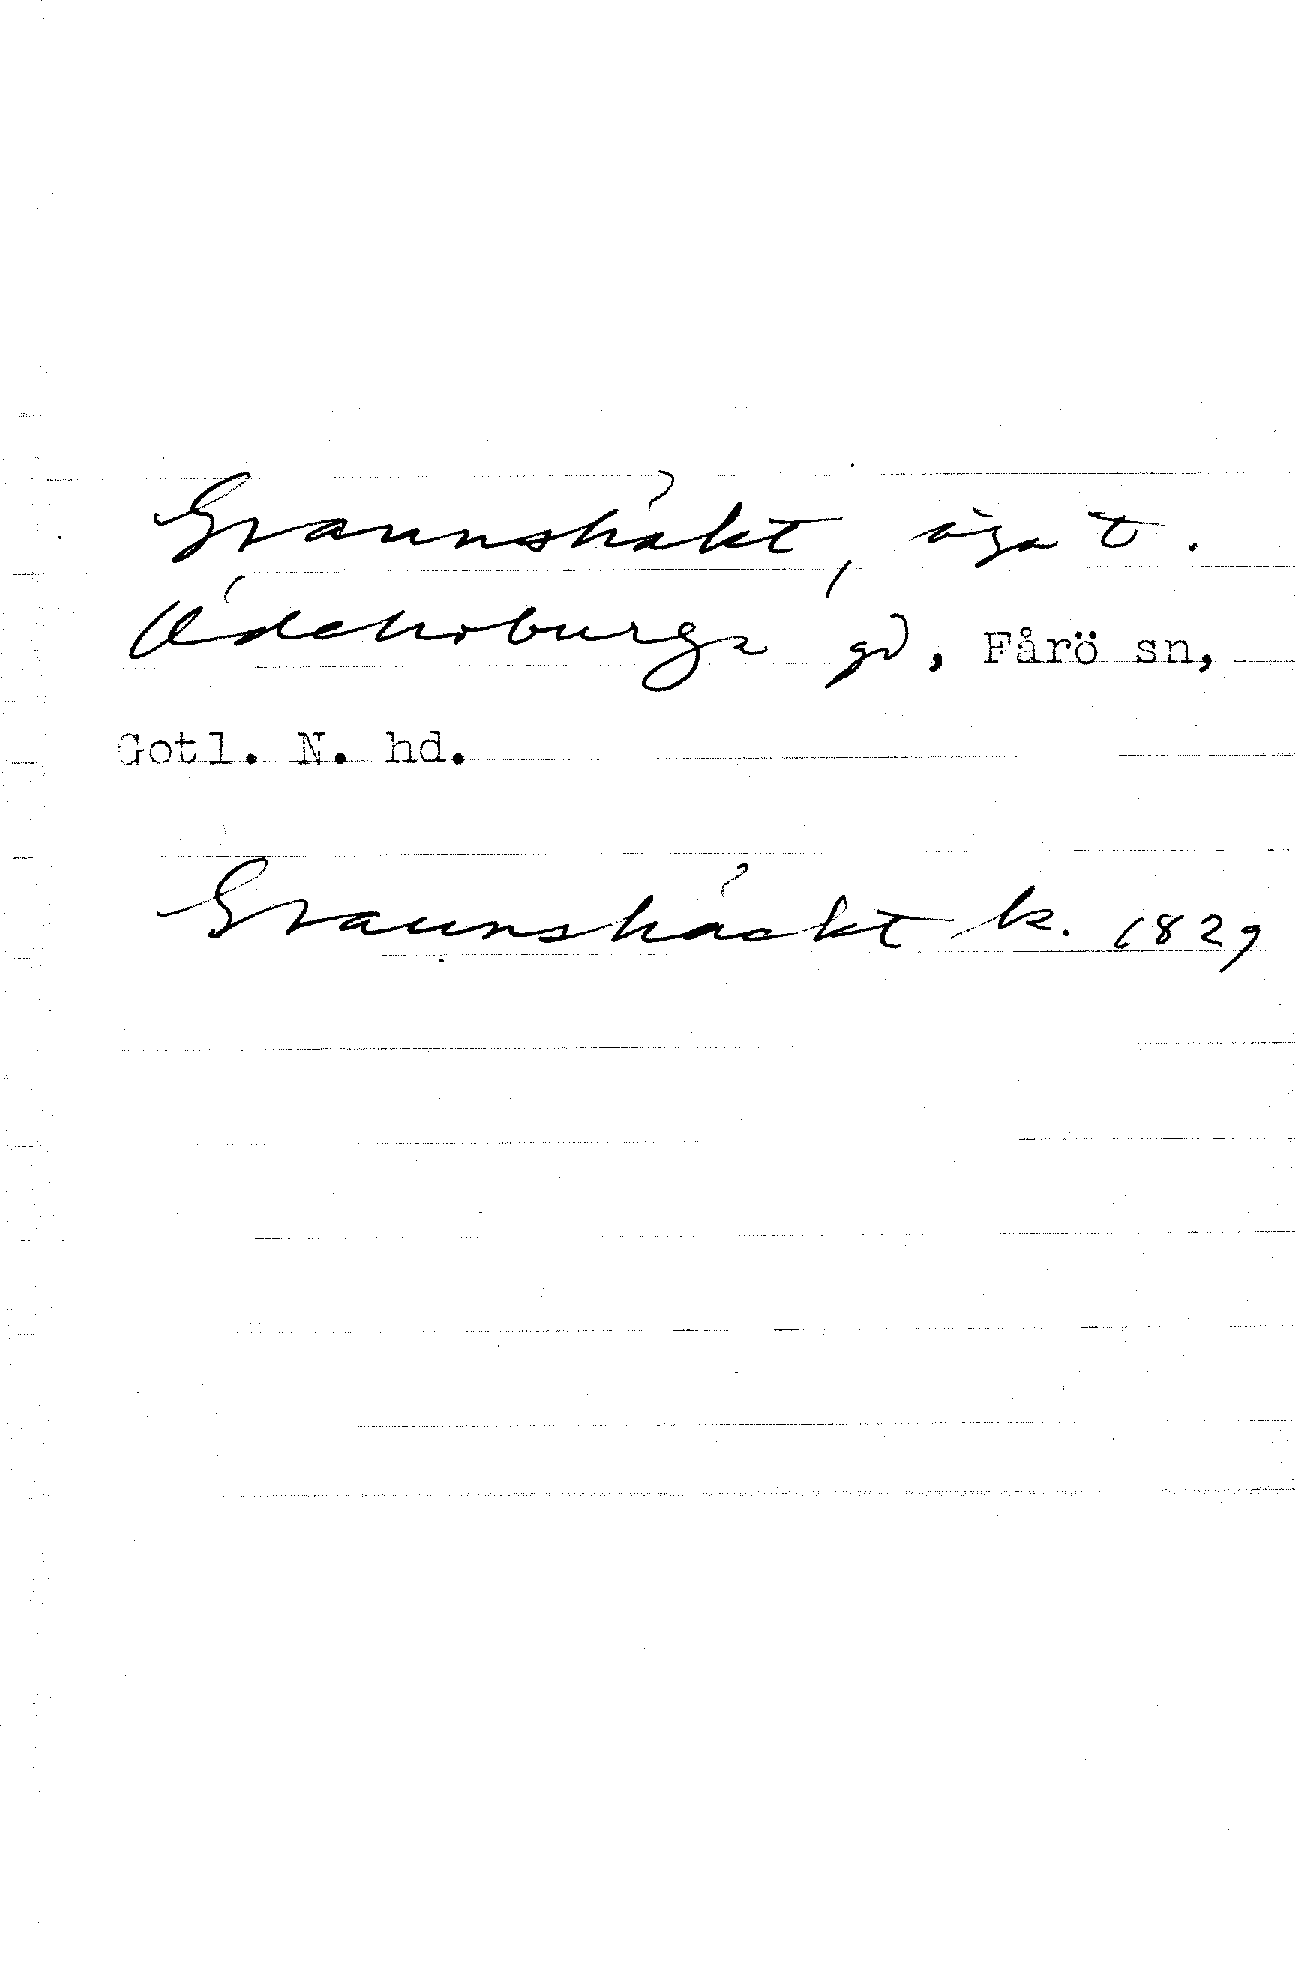 Graunshåkt, äga t.
Ödehoburga gd, Fårö sn,
Gotl. N. hd.
Graunshåckt k. 1829